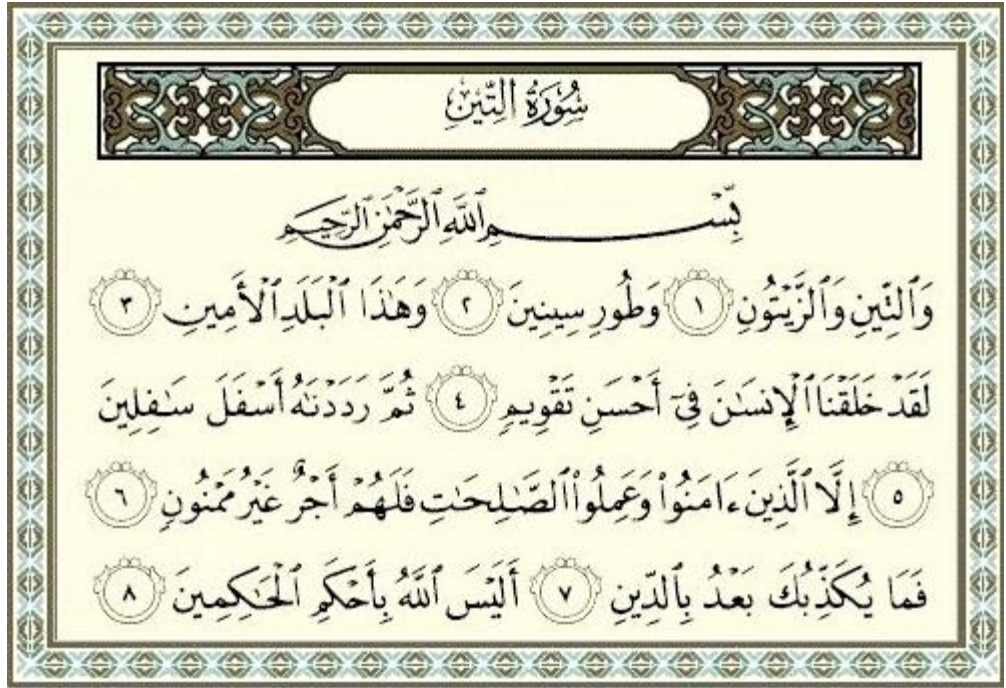 سُورَةُ التِّينِ
بِّسْمِ ٱللَّهِ ٱلرَّحْمَٰنِ ٱلرَّحِيمِ
وَٱلتِّينِ وَٱلزَّيْتُونِ ١ وَطُورِ سِينِينَ ٢ وَهَٰذَا ٱلْبَلَدِ ٱلْأَمِينِ ٣
لَقَدْ خَلَقْنَا ٱلْإِنسَٰنَ فِىٓ أَحْسَنِ تَقْوِيمٍ ٤ ثُمَّ رَدَدْنَٰهُ أَسْفَلَ سَٰفِلِينَ
٥ إِلَّا ٱلَّذِينَ ءَامَنُوا۟ وَعَمِلُوا۟ ٱلصَّٰلِحَٰتِ فَلَهُمْ أَجْرٌ غَيْرُ مَمْنُونٍ ٦
فَمَا يُكَذِّبُكَ بَعْدُ بِٱلدِّينِ ٧ أَلَيْسَ ٱللَّهُ بِأَحْكَمِ ٱلْحَٰكِمِينَ ٨